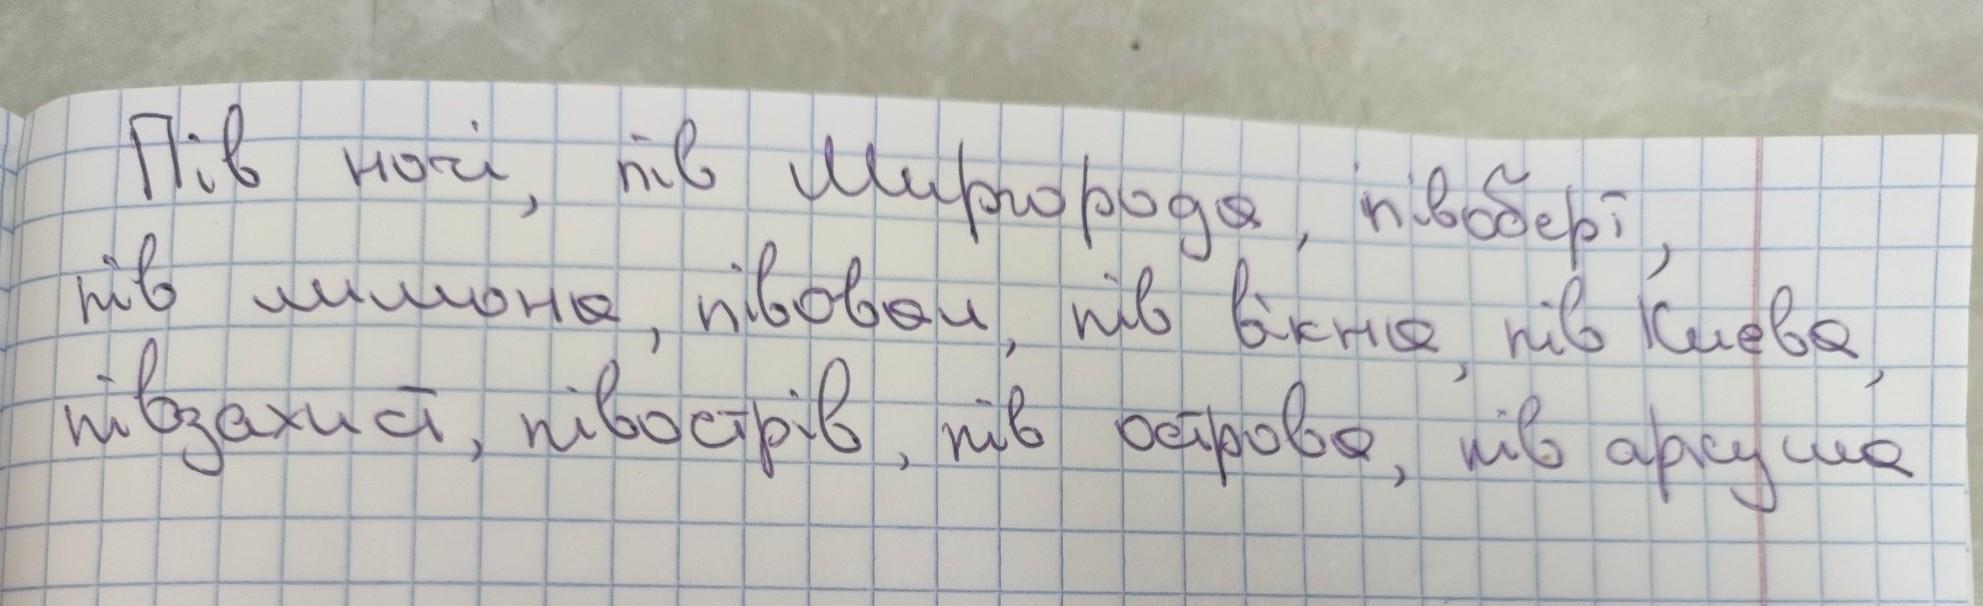 Пів ночі, пів Миргорода, півоберт,
пів лимона, півовал, пів вікна, пів Києва,
півзахист, півострів, пів острова, пів аркуша